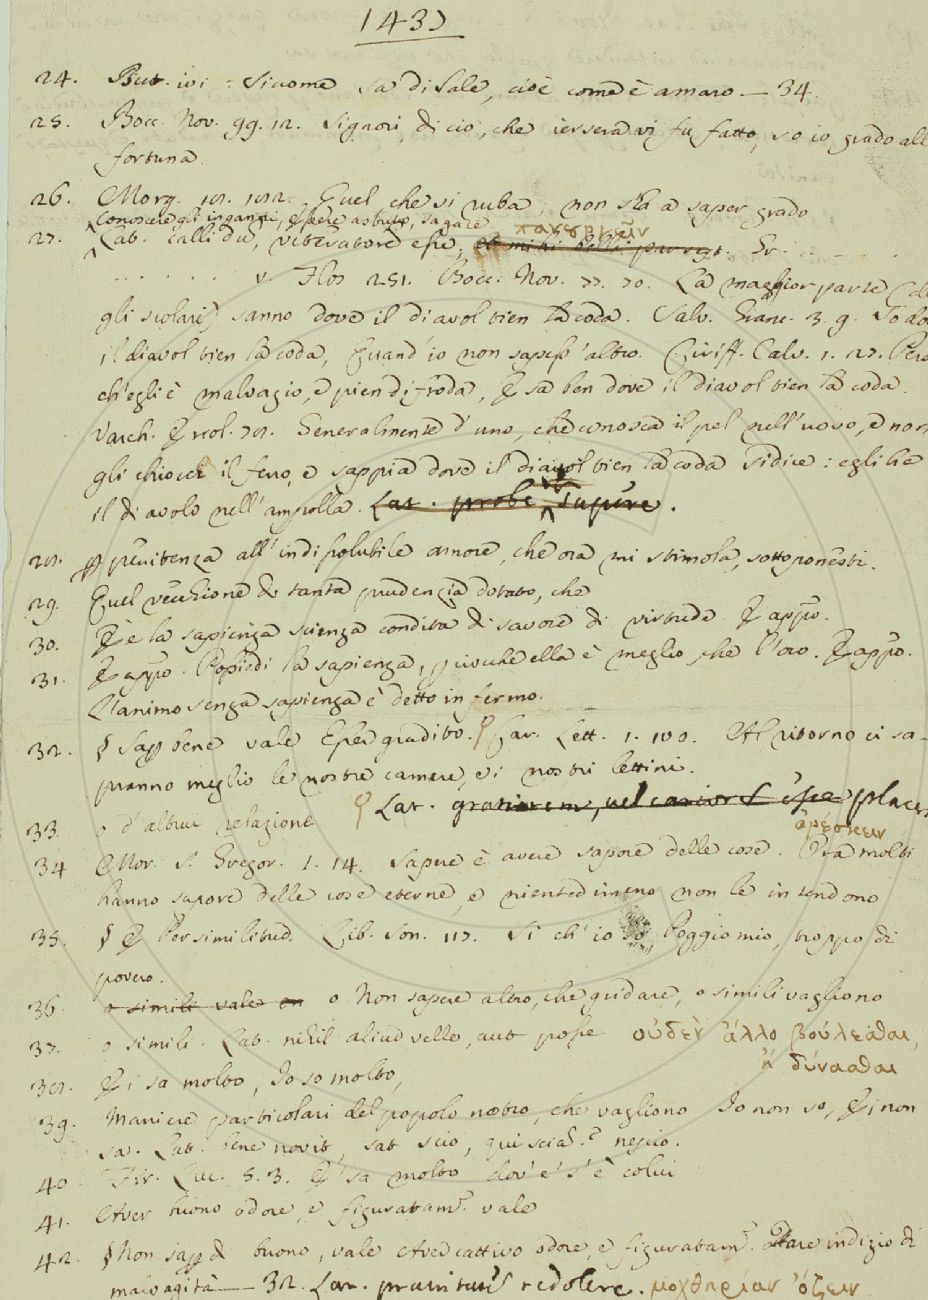 1437
24. But. ivi: Siccome sa di sale, cioè come è amaro. — 34.
25. Bocc. Nov. 99. 12. Signori, di ciò, che iersera vi fu fatto, so io grado all
fortuna.
26. Morg. Quel che si ruba, non s'ha a saper grado
Conoscere gl'inganni, essere astuto, sagace
27. Lat. callidu, veteratore esse, πανουργεῖν Gr.
. . . . . . v. Flos 251. Bocc. Nov. 77. 70. La maggior parte (de
gli scolari) sanno dove il diavol tien la coda. Salv. Granc. 3. 9. So do
il diavol tien la coda, quand'io non sapess'altro. Ciriff. Calv. 1. 27. Però
ch'egli è malvagio, e pien di froda, E sa ben dove il diavol tien la coda.
Varch. Ercol. Generalmente d'uno, che conosca il pel nell'uovo, e non
gli chiocci il ferro, e sappia dove il diavol tien la coda si dice: egli ha
il diavolo nell'ampolla. Lat. probe sapere.
28. penitenza all'indissolubile amore, che ora mi stimola, sottoponesti.
29. Quel vecchione di tanta prudenzia dotato, che
30. E è la sapienza scienza condita di savore di virtude. E appo.
31. E appo. Possiedi la sapienza, perciocchè ella è meglio che l'oro. E appo.
L'animo senza sapienza è detto infermo.
32. § Sap bene vale Esser gradito. § Car. Lett. 1. 100. Al ritorno ci sa-
pranno meglio le nostre camere, e i nostri lettini.
§ Lat. gratiorem, vel cariorē esse place
33. o d'altrui relazione ἀρέσκειν
34 Mor. S. Gregor. 1. 14. Sapere è avere sapore delle cose. Ma molti
hanno sapore delle cose eterne, e nientedimeno non le intendono
35. § E Per similitud. Lib. Son. 117. Si ch'io so, Poggio mio, troppo di
povero.
36. o simili vale o Non sapere altro, che gridare, o simili vagliono
37. o simili. Lat. nihil aliud velle, aut posse οὐδὲν ἄλλο βούλεσθαι,
ἢ δύνασθαι
38. E' si sa molto, Io so molto,
39. Maniere particolari del popolo nostro, che vagliono Io non so, E' non
sa. Lat. bene novit, sat scio, qui scia? nescio.
40. Fir. Luc. 5. 3. E' sa molto dov'e' s'è colui
41. Aver buono odore, e figuratam.e vale
42. § Non sap di buono, vale Aver cattivo odore, e figuratam.e Dare indizio di
malvagità — 32. Lat. pravitatis redolere. μοχθηρίαν ὄζειν